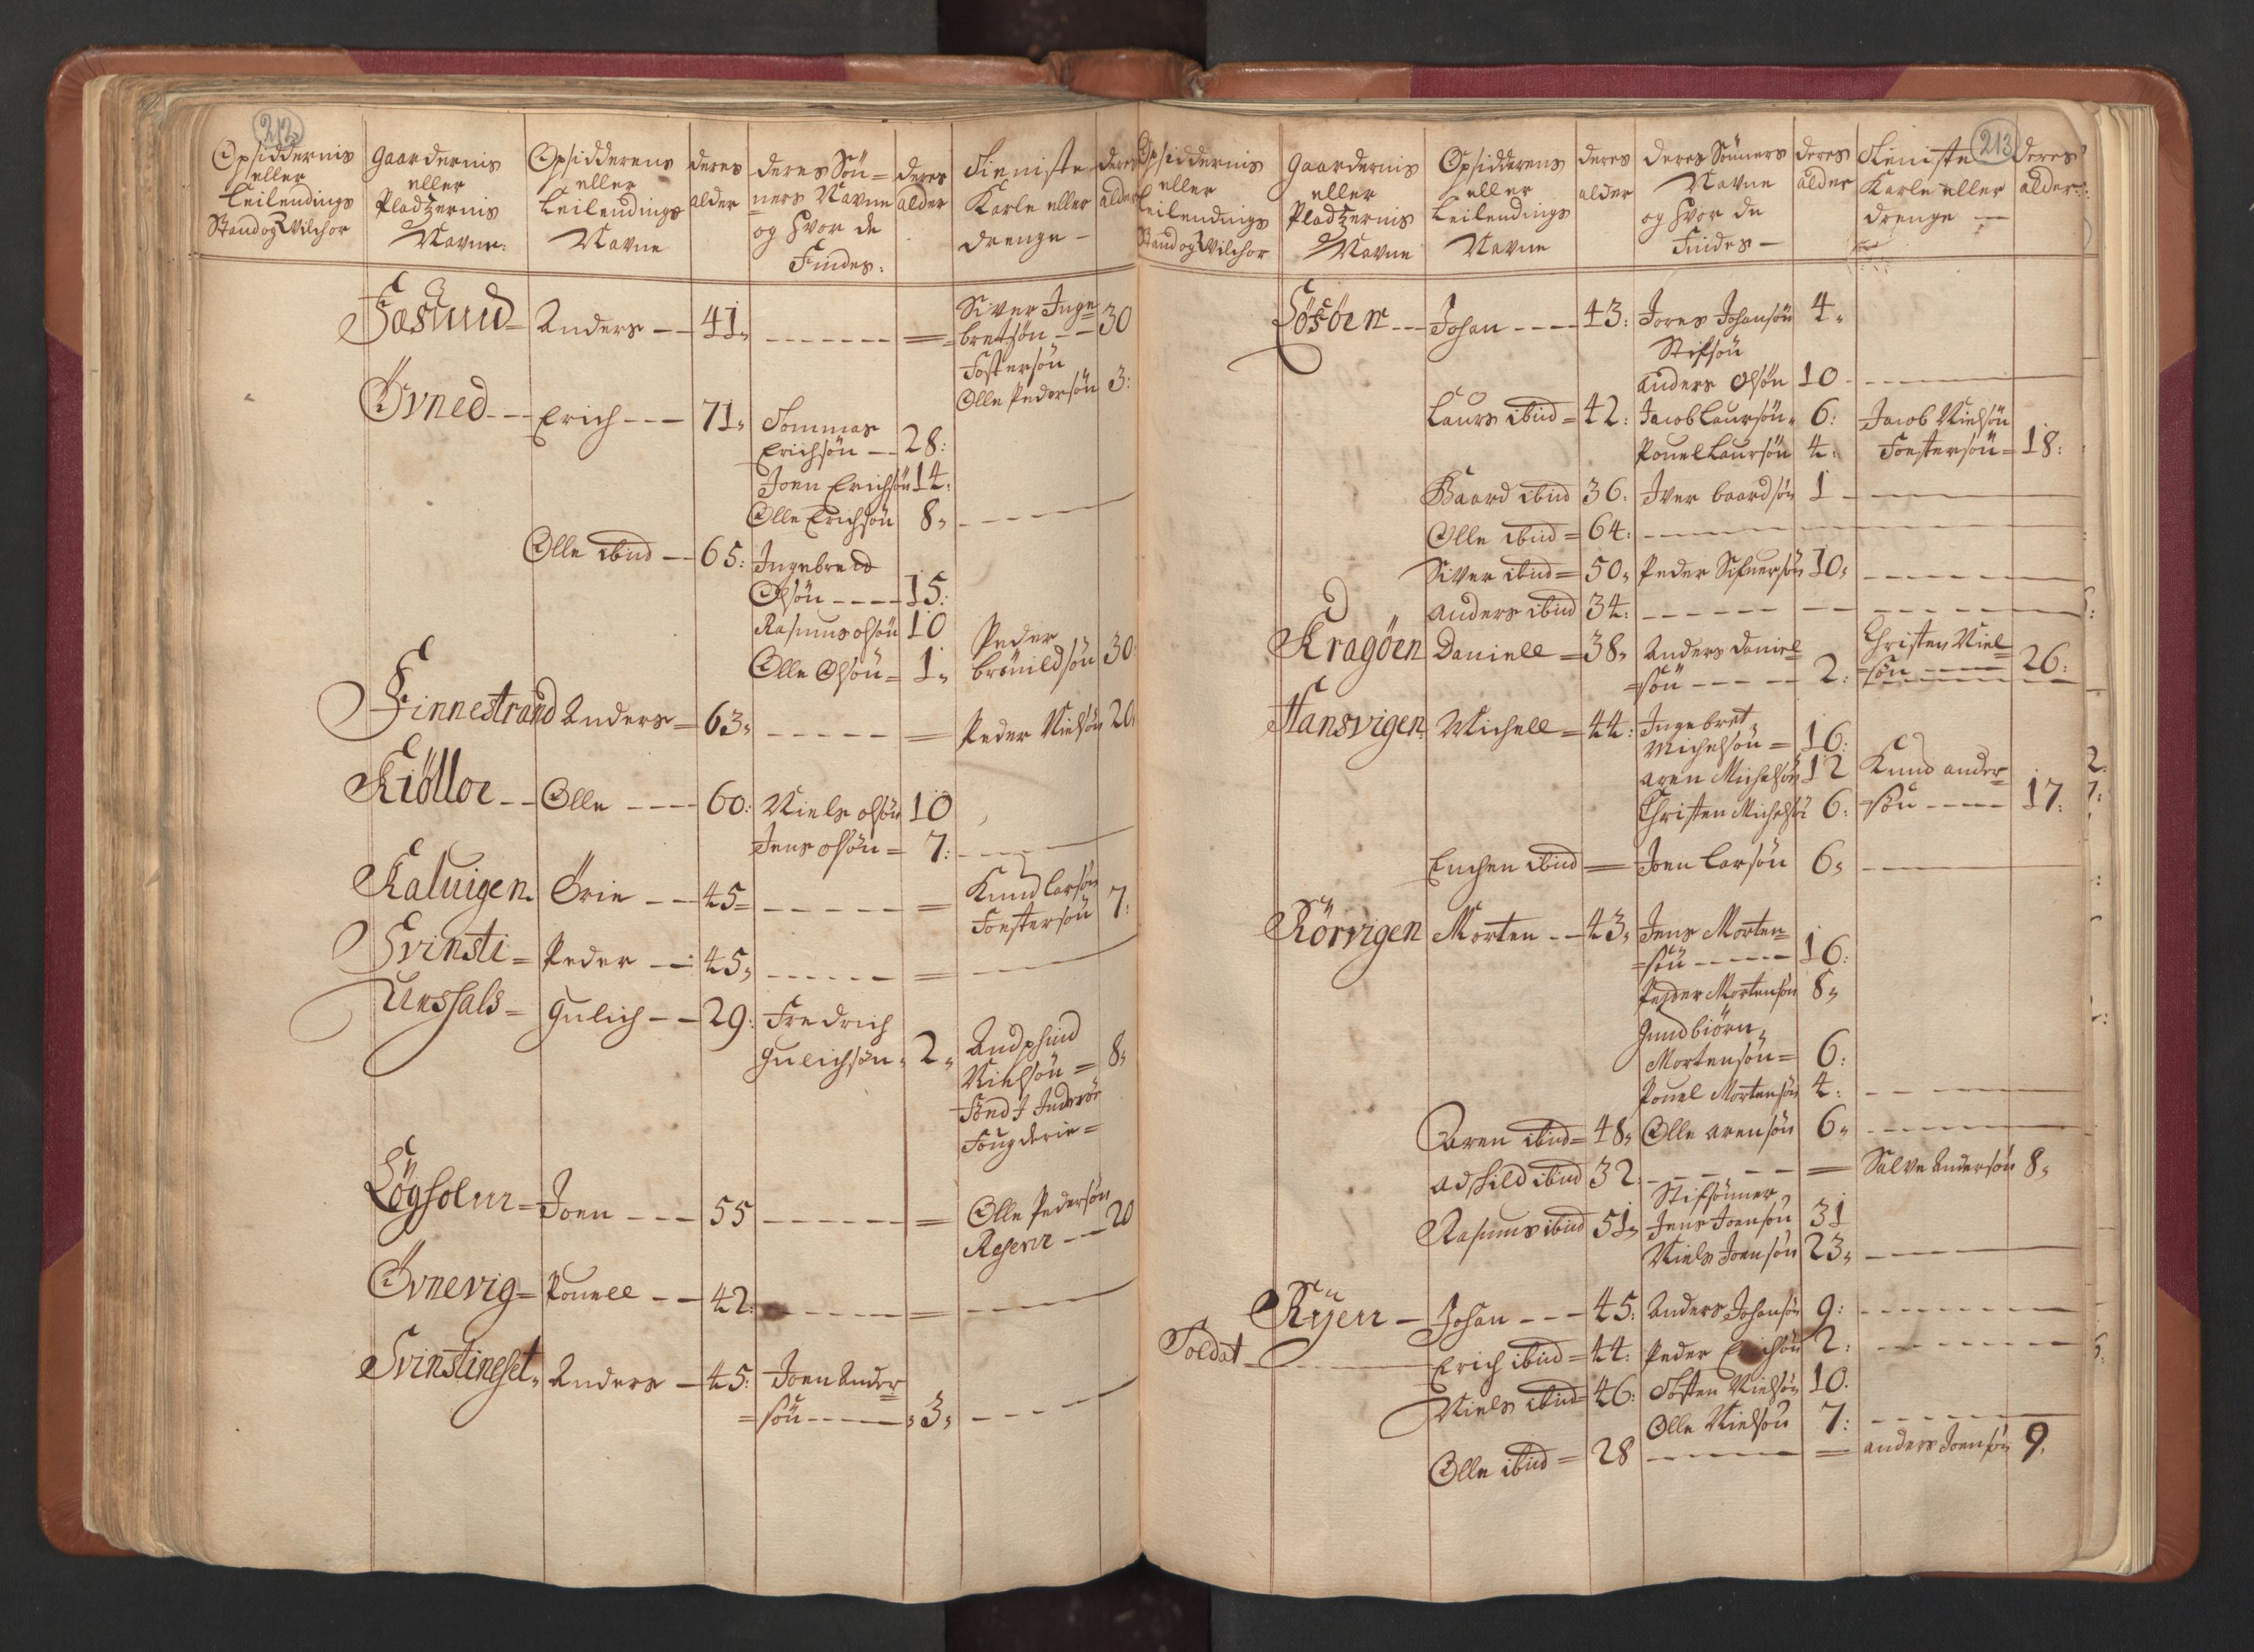 212
Opsiddernis eller Leilendings Stand og Vilchor
Gaardernis eller Pladzernis Navne:
Opsidderens eller Leilendings Navne
deres alder
deres Sön=ners Navne og hvor de Findes:
deres alder
Tieniste Karle eller drenge –
deres alder
Anders -- 41,, ------- = Siver Inge=
bretsön -- 30
Fostersön
Olle Pedersön 3:
Övned -- Erich --- 71,, Tommas
Erichsön -- 28:
Joen Erichsön 14:
Olle Erichsön 8,, ----
Olle ibid -- 65: Ingebred
Olsön ---- 15:
Rasmus olsön 10
Olle Olsön = 1,, Peder
30:
Finnestrand Anders = 63,, ----- = Peder Nielsön 20,
Kiölloe -- Olle ---- 60: Niels olsön 10
Jens olsön = 7: ----
Kaluigen. Örie -- 45= ----- = Knud Larsön
Foestersön 7:
Svinsti = Peder -- 45,, ------ = ----
Gulich -- 29: Fredrich
Gulichsön, 2,, Andphind
Nielsön = 8,,
Fougderie =
Lögholm = Joen --- 55 ------ = Olle Pedersön
Reserve -- 20
Övnevig = Pouell -- 42: ------ = ----
Svinstineset, Anders - 45: Joen Ander
=sön ---- ,3,, ----
213
Opsiddernis eller Leilendings Stand og Vilchor
Gaardernis eller Pladzernis Navne
Opsidderens eller Leilendings Navne
deres alder
deres Sönners Navne og hvor de Findes –
deres alder
Tieniste Karle eller drenge –
deres alder:
Johan ---- 43: Jores Johansön 4,,
Stifsön
anders Olsön 10 ------
Laurs ibid = 42: Jacob Laursön, 6: Jacob Nielsön
Pouel Laursön 4: Foestersön = 18:
Baard ibid 36: Iver baardsön 1 ----
Olle ibid = 64: ------
Siver ibid = 50,, Peder Sifuersön 10,, -----
anders ibid 34: ------ -- ------
Kragöen Daniell = 38,, Anders Daniel
=sön ---- 2: Christen Niel
=sön ---- 26:
Hansvigen Michell = 44: Ingebret
Michelsön = 16:
aren Michelsön 12 Knud ander
Christen Michelsön 6: =sön ---- 17:
Enchen ibid = Joen Larsön 6,, ----
Rörvigen Morten -- 43,, Jens Morten
=sön ----- 16:
Peder Mortensön 8,,
Gundbiörn
Mortensön = 6:
Pouel Mortensön 4: ----
Aaren ibid = 48,, Olle arensön 6,, -----
Adskild ibid 32: ----- = Salve Andersön 8,,
Stifsönner
Rasmus ibid 51,, Jens Joensön 31
Niels Joensön 23,, ----
Ryen – Johan --- 45: Anders Johansön 9: ------
Soldat ----- Erich ibid = 44: Peder Erichsön 2: ------
Niels ibid 46: Tosten Nielsön 10.
Olle Nielsön 7: -----
Olle ibid = 28 ------ = anders Joensön 9,